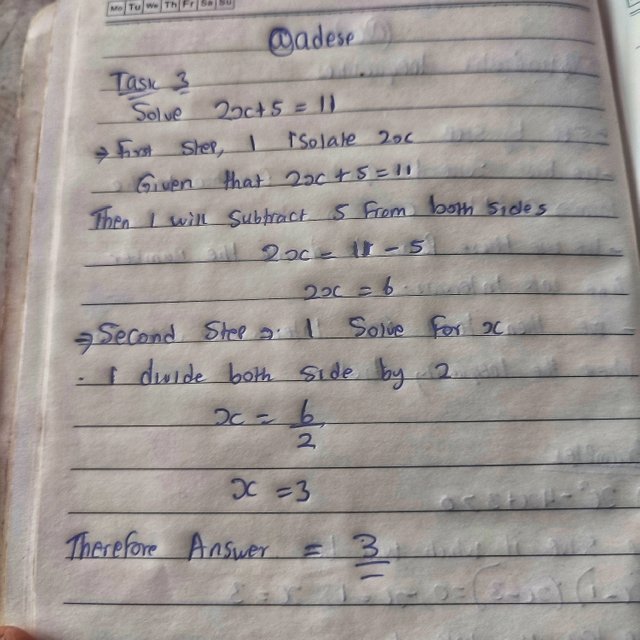 Mo Tu We Th Fr Sa Su
@adese
Task 3
Solve 2x+5=11
⇒ First Step, I Isolate 2x
Given that 2x+5=11
Then I will Subtract 5 From both sides
2x = 11 - 5
2x = 6
⇒ Second Step ⇒ I Solve For x
. I divide both side by 2
x = 6/2
x = 3
Therefore Answer = 3